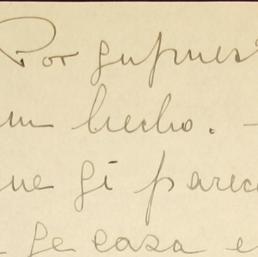 Por supues
un hecho. -
ue si parec
se casa e